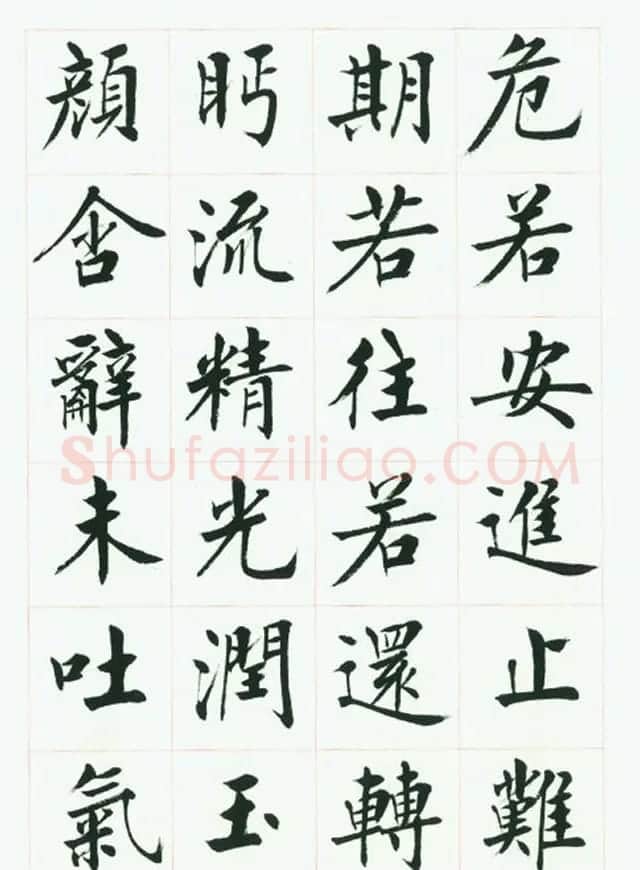 危若安進止難
期若往若還轉
眄流精光潤玉
顏含辭未吐氣
Shufaziliao.COM